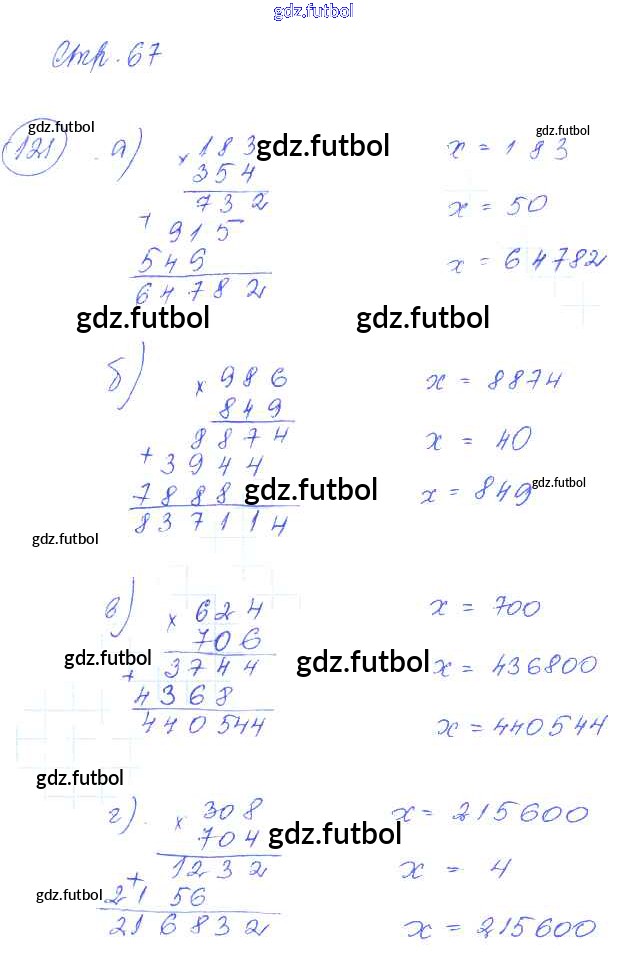 gdz.futbol
Стр. 67
gdz.futbol gdz.futbol
121 а) × 183 gdz.futbol x = 183
354
732 x = 50
+ 915
546 x = 64782
64782
gdz.futbol gdz.futbol
б) × 986 x = 8874
849
8874 x = 40
+ 3944
7888 gdz.futbol x = 849 gdz.futbol
837114
gdz.futbol
в) × 624 x = 700
706
gdz.futbol 3744 gdz.futbol x = 436800
+ 4368
440544 x = 440544
gdz.futbol
г). × 308 x = 215600
704 gdz.futbol
1232 x = 4
gdz.futbol + 2156
216832 x = 215600